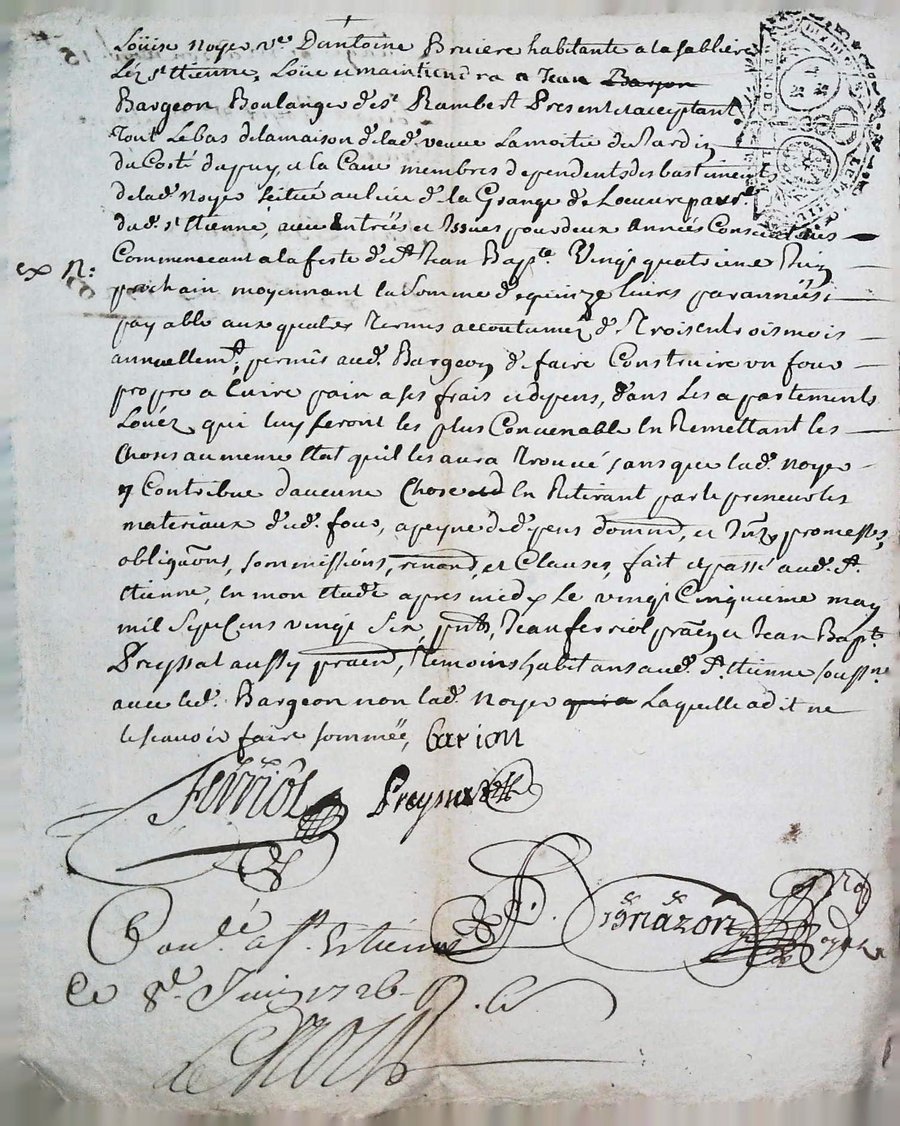 Loüise Noyer v.e D'antoine Bruiere habitante a la Sabliere
Léz St Etienne, Loüe et maintiendra a Jean Bargeon
Bargeon Boulanger de St Rambert Present et acceptant
Tout Le bas de la maison de lad. veuve La moitié du Jardin
du Costé du puy, et la Cave membres dependents des bastiments
de lad. Noyer scitué au lieu de la Grange de Loeuvre parr.e
dud. St Etienne, avec Entrées et Issues pour deux Années Consecutives
ex N:
Commenceant a la feste de St Jean Bap.te Vingt quatrieme Juin
prochain moyennant la Somme de quinze livres par années
payable aux quatre Termes accoutumez de Trois en trois mois
annuellem.t, permis aud. Bargeon de faire Construire un four
propre a Cuire pain a ses frais et depens, dans Les apartements
Loüéz qui luy seront les plus Convenable En Remettant les
Choses au meme Etat quil les aura Trouvé, sans que lad. Noyer
y Contribue d'aucune Chose En Retirant par le preneur les
materiaux dud. four, a peyne de depens domm, et Intz promesses,
obliga͠ons, sommissions, renond, et Clauses, fait et passé aud. St
Etienne, En mon Etude apres midy Le vingt Cinquieme may
mil Sept Cens vingt Six, pnts, Jean ferriol pra͠en et Jean Bapt.e
Preyssat aussy pra͠en, Temoins habitans aud. St Etienne soussne
avec led. Bargeon non lad. Noyer qui a Laquelle a dit ne
le scavoir faire sommée,
Ferriol Preynat
Conlé a St Estienne
Ce 8e Juin 1726